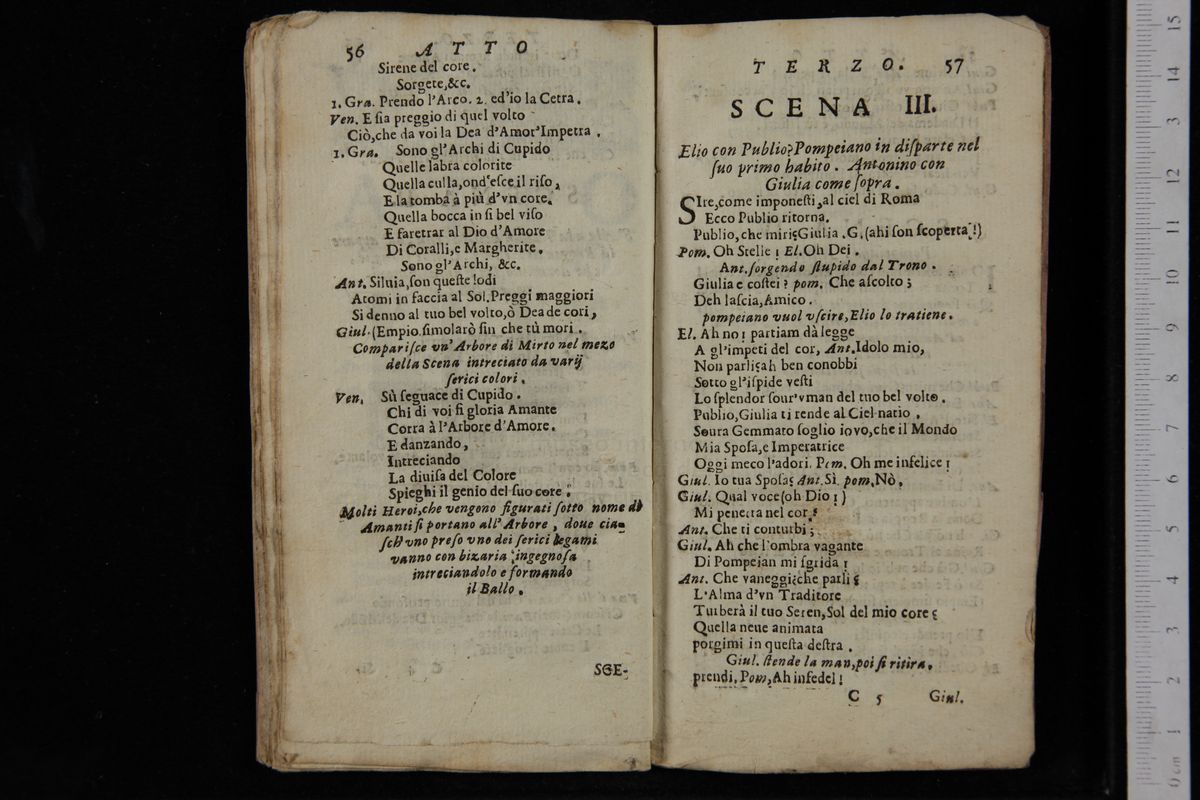 56 ATTO
Sirene del core.
Sorgete,&c.
1. Gra. Prendo l'Arco. 2. ed'io la Cetra.
Ven. E sia preggio di quel volto
Ciò,che da voi la Dea d'Amor'Impetra.
1. Gra. Sono gl'Archi di Cupido
Quelle labra colorite
Quella culla,ond'esce il riso,
E la tomba à più d'vn core.
Quella bocca in sì bel viso
E faretrar al Dio d'Amore
Di Coralli,e Margherite.
Sono gl'Archi, &c.
Ant. Siluia,son queste lodi
Atomi in faccia al Sol.Preggi maggiori
Si denno al tuo bel volto,ò Dea de cori,
Giul. (Empio.simolarò sin che tù mori.
Comparisce vn'Arbore di Mirto nel mezo
della Scena intreciato da varij
serici colori.
Ven. Sù seguace di Cupido.
Chi di voi si gloria Amante
Corra à l'Arbore d'Amore.
E danzando,
Intreciando
La diuisa del Colore
Spieghi il genio del suo core.
Molti Heroi,che vengono figurati sotto nome di
Amanti si portano all'Arbore, doue cia-
sch'vno preso vno dei serici legami
vanno con bizaria ingegnosa
intreciandolo e formando
il Ballo.
SCE-
TERZO. 57
SCENA III.
Elio con Publio?Pompeiano in disparte nel
suo primo habito. Antonino con
Giulia come sopra.
SIre,come imponesti,al ciel di Roma
Ecco Publio ritorna.
Publio,che miri?Giulia.G.(ahi son scoperta!)
Pom. Oh Stelle! El.Oh Dei.
Ant.sorgendo stupido dal Trono.
Giulia e costei? pom. Che ascolto;
Deh lascia,Amico.
pompeiano vuol vscire,Elio lo tratiene.
El. Ah no! partiam dà legge
A gl'impeti del cor, Ant.Idolo mio,
Non parli?ah ben conobbi
Sotto gl'ispide vesti
Lo splendor sour'vman del tuo bel volto.
Publio,Giulia ti rende al Ciel natio.
Soura Gemmato soglio io vo,che il Mondo
Mia Sposa,e Imperatrice
Oggi meco l'adori. Pom. Oh me infelice!
Giul. Io tua Sposa? Ant.Sì. pom.Nò.
Giul. Qual voce(oh Dio!)
Mi penetra nel cor?
Ant. Che ti conturbi;
Giul. Ah che l'ombra vagante
Di Pompeian mi sgrida!
Ant. Che vaneggi?che parli?
L'Alma d'vn Traditore
Turberà il tuo Seren,Sol del mio core?
Quella neue animata
porgimi in questa destra.
Giul. stende la man,poi si ritira.
prendi. Pom,Ah infedel!
C 5 Giul.